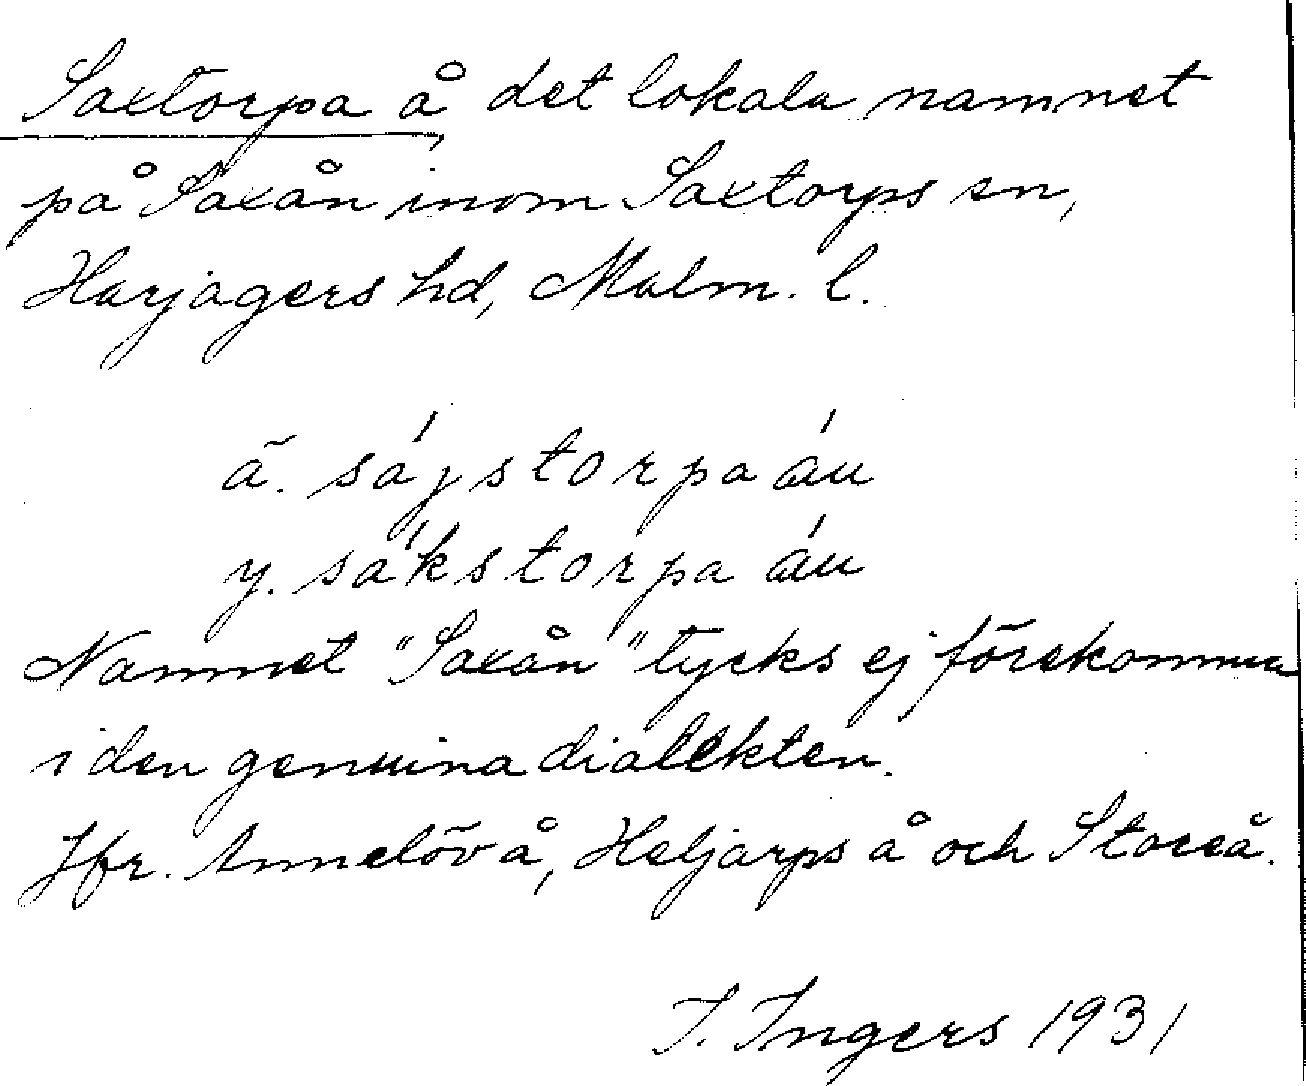 Saxtorpa å, det lokala namnet
på Saxån inom Saxtorps sn,
Harjagers hd, Malm. l.
ä. sájstorpa áu
y. sákstorpa áu
Namnet "Saxån" tycks ej förekomma
i den genuina dialekten.
Jfr. Annelöv å, Heljarps å och Storeå.
I. Ingers 1931